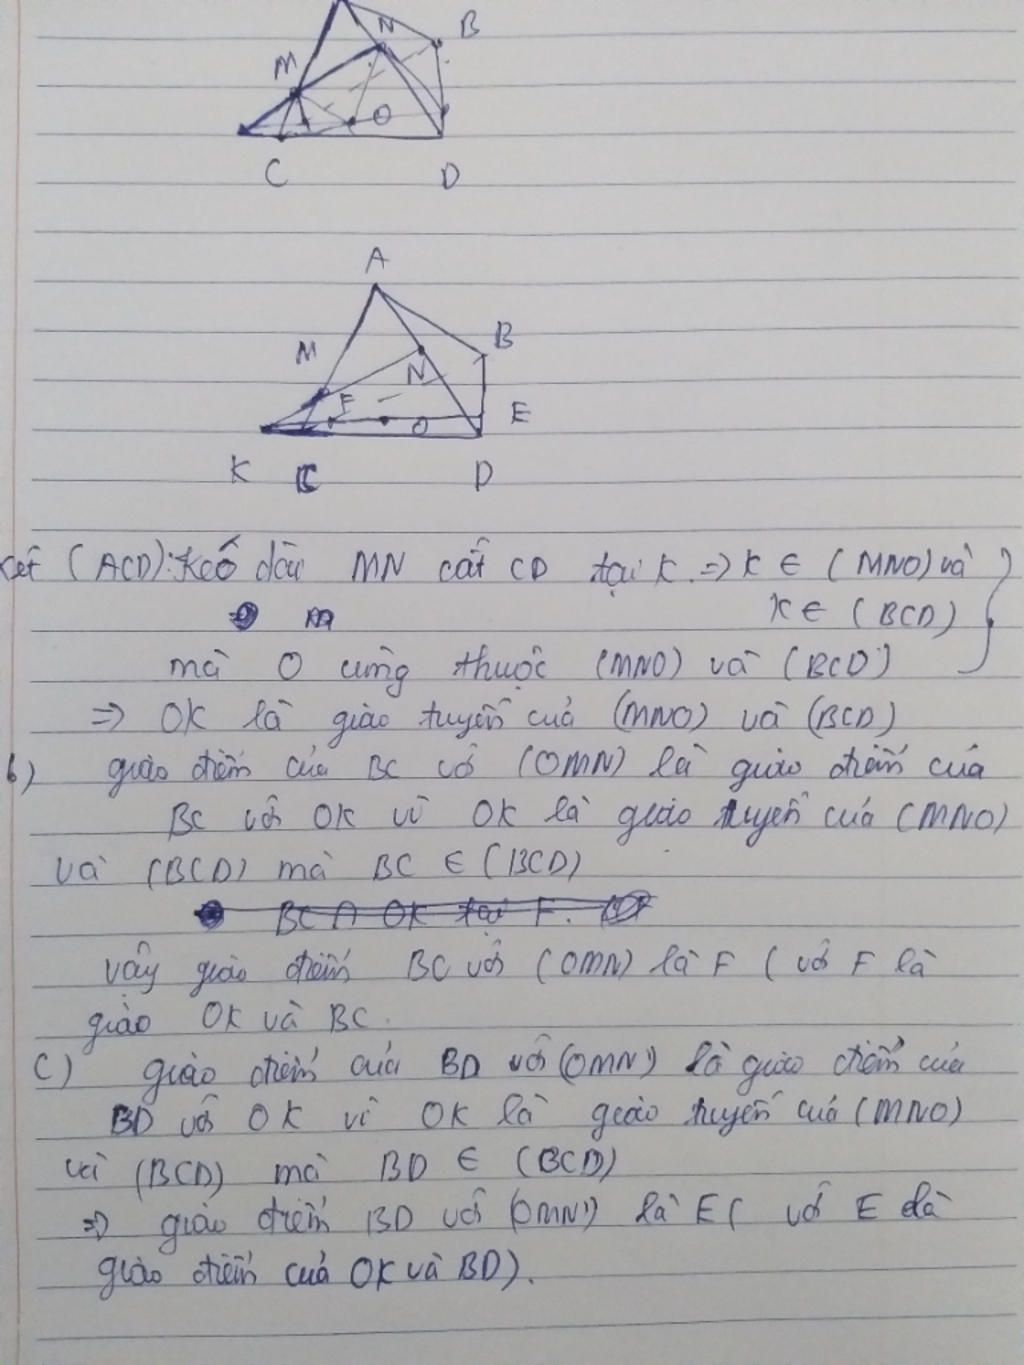 N
B
M
O
C
D
A
B
M
N
F
E
O
K
C
D
xét (ACD): kéo dài MN cắt CD tại K. => K ∈ (MNO) và
K ∈ (BCD)
mà O cũng thuộc (MNO) và (BCD)
=> OK là giao tuyến của (MNO) và (BCD)
b) giao điểm của BC với (OMN) là giao điểm của
BC với OK vì OK là giao tuyến của (MNO)
và (BCD) mà BC ∈ (BCD)
BC ∩ OK tại F.
vậy giao điểm BC với (OMN) là F ( với F là
giao OK và BC.
C) giao điểm của BD với (OMN) là giao điểm của
BD với OK vì OK là giao tuyến của (MNO)
và (BCD) mà BD ∈ (BCD)
=> giao điểm BD với (OMN) là E ( với E là
giao điểm của OK và BD).